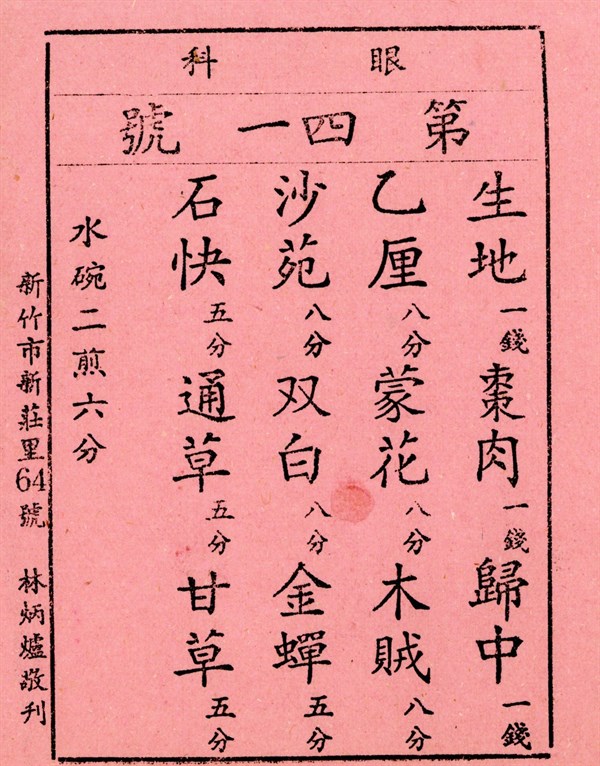 眼科
第四一號
生地一錢棗肉一錢歸中一錢
乙厘八分蒙花八分木賊八分
沙苑八分双白八分金蟬五分
石快五分通草五分甘草五分
水碗二煎六分
新竹市新莊里64號 林炳爐敬刊